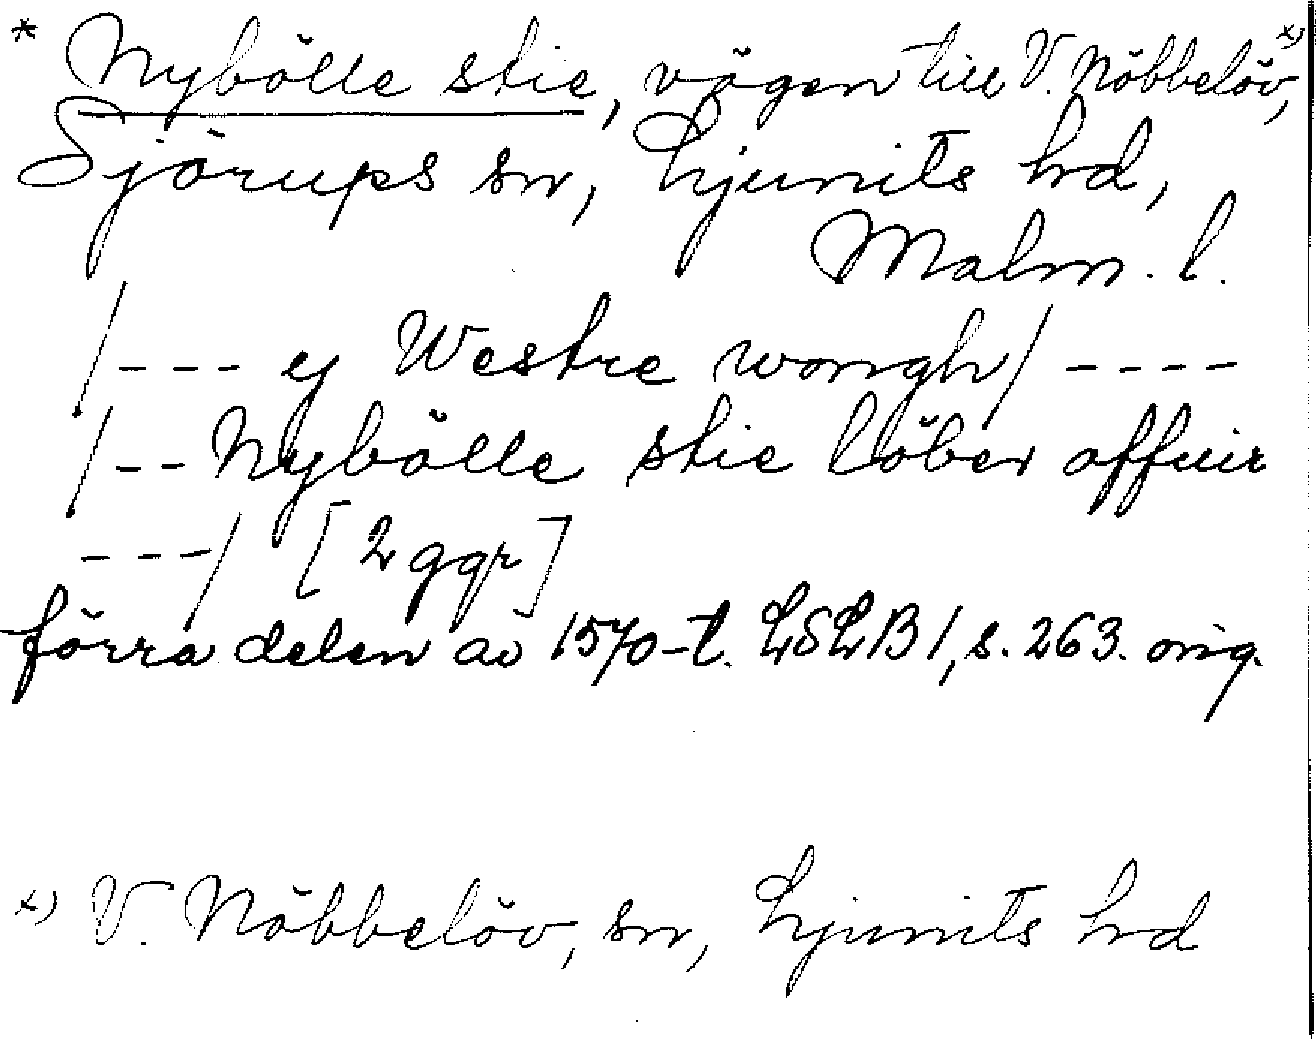 * Nybölle stie, vägen till V. Nöbbelöv, x)
Sjörups sn, Ljunits hrd,
Malm. l.
/--- ej Westre wongh/ ----
/-- Nybölle stie löber offuir
---/ [2 ggr]
förra delen av 1570-t. LSLB 1, s. 263. orig.
x) V. Nöbbelöv, sn, Ljunits hrd